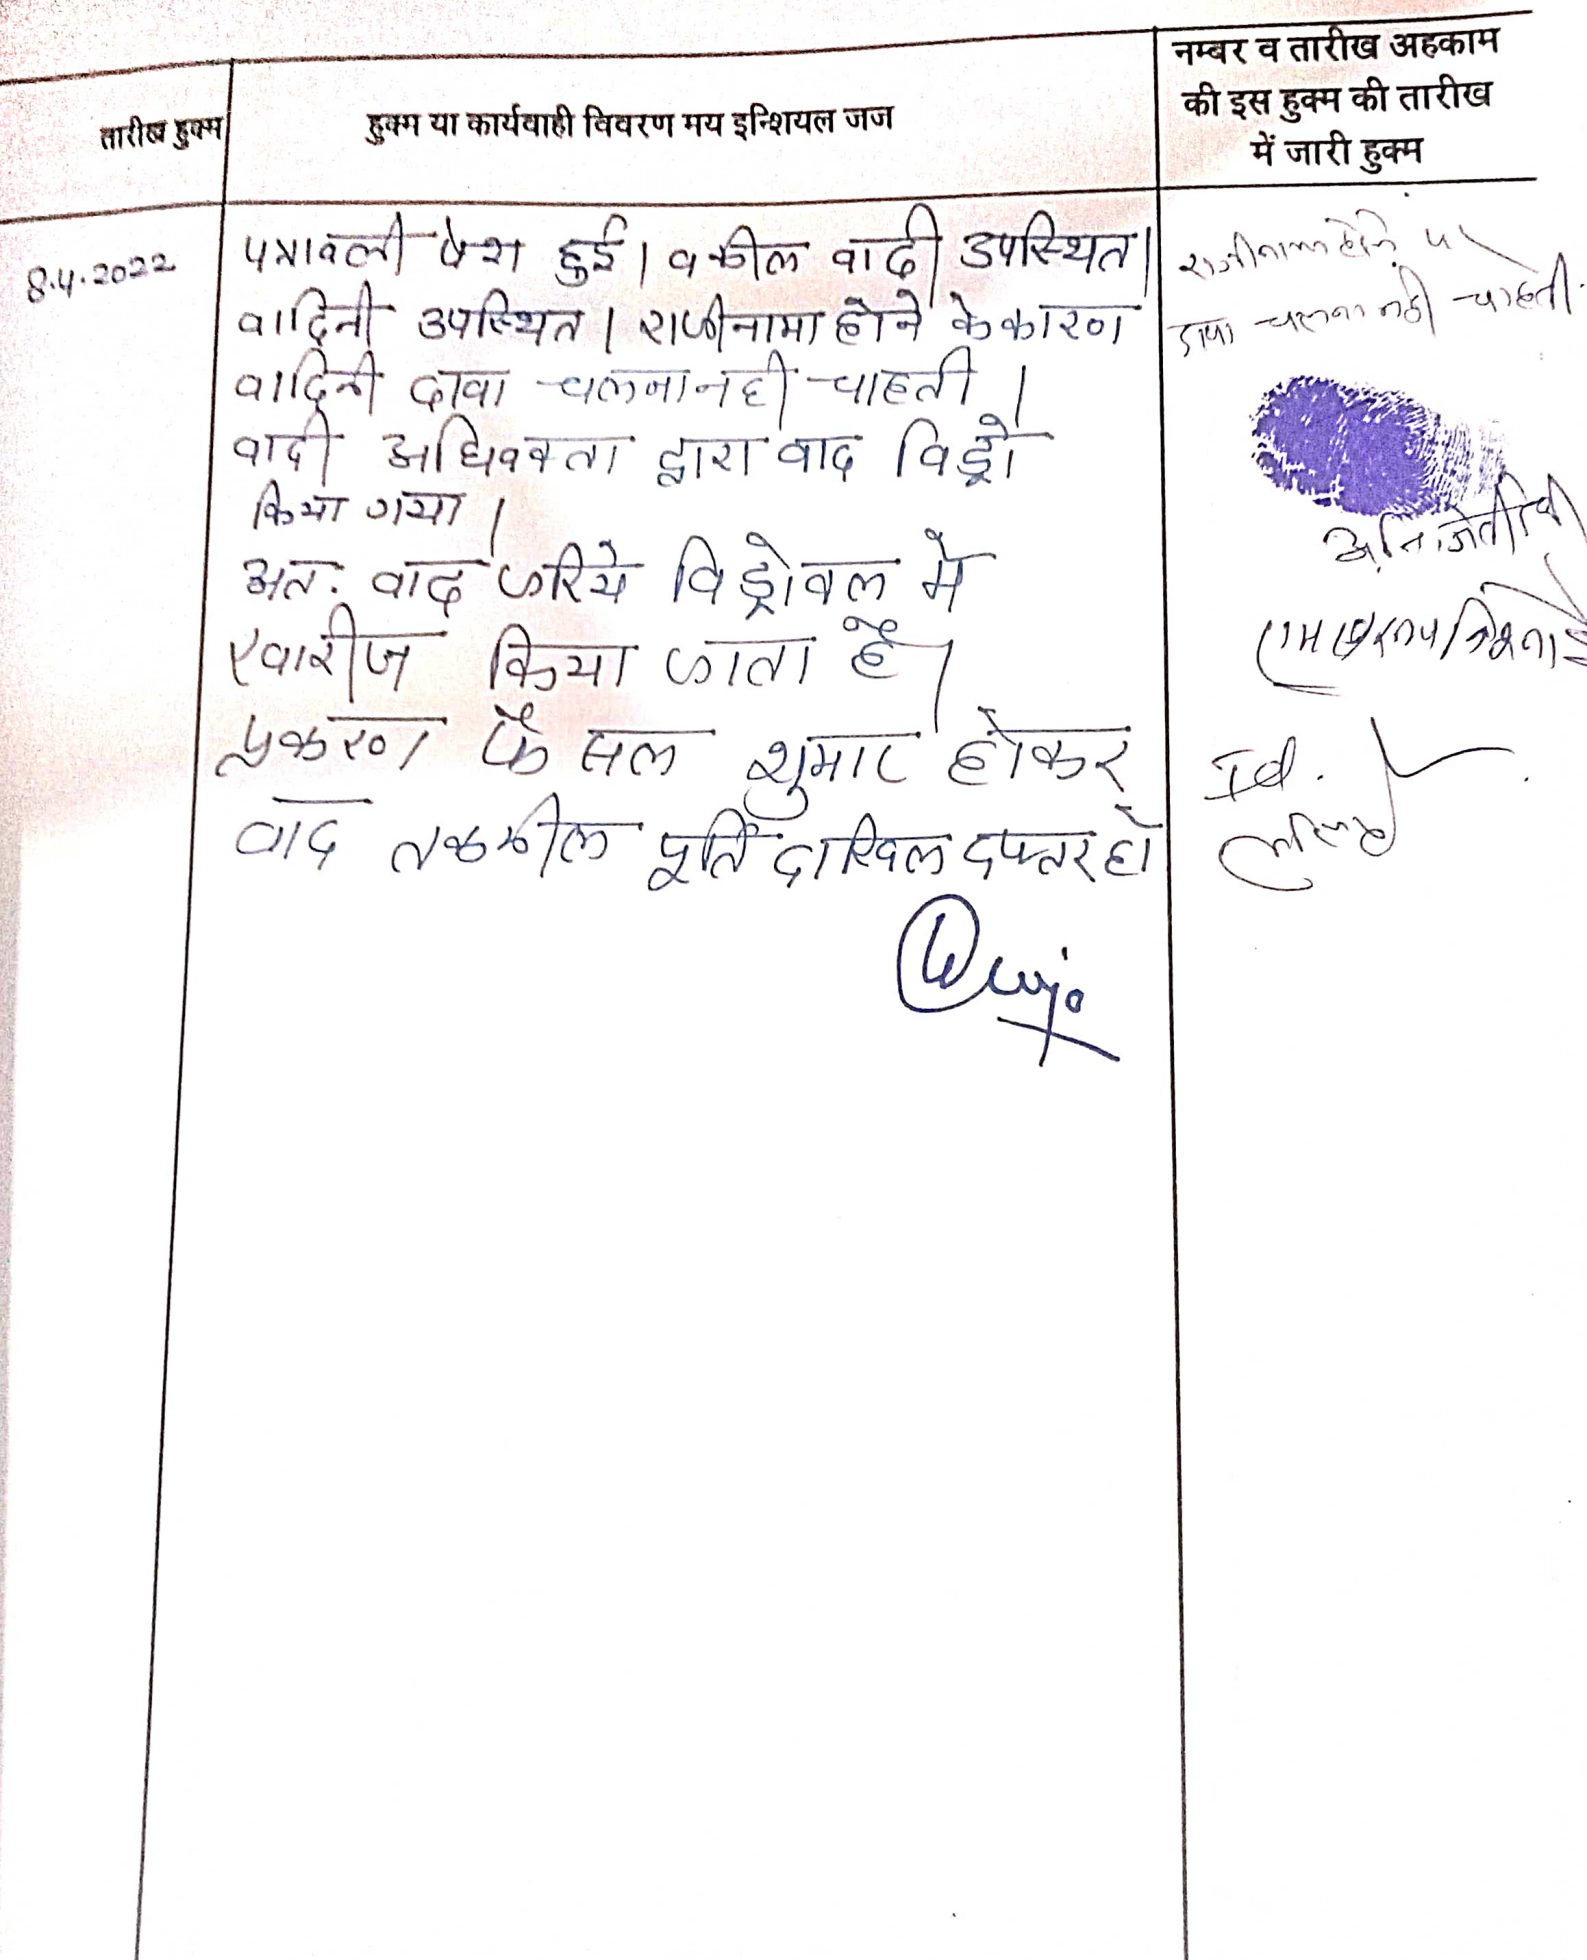 तारीख हुक्म
हुक्म या कार्यवाही विवरण मय इन्शियल जज
नम्बर व तारीख अहकाम
की इस हुक्म की तारीख
में जारी हुक्म
8.4.2022
पत्रावली पेश हुई। वकील वादी उपस्थित।
वादिनी उपस्थित। राजीनामा होने के कारण
वादिनी दावा चलना नही चाहती।
वादी अधिवक्ता द्वारा वाद विड्रो
किया गया।
अत: वाद जरिये विड्रोवल मे
खारीज किया जाता है।
प्रकरण फैसल शुमार होकर
वाद तकमील पूर्ति दाखिल दफ्तर हो
राजीनामा होने पर
दावा चलाना नही चाहती.